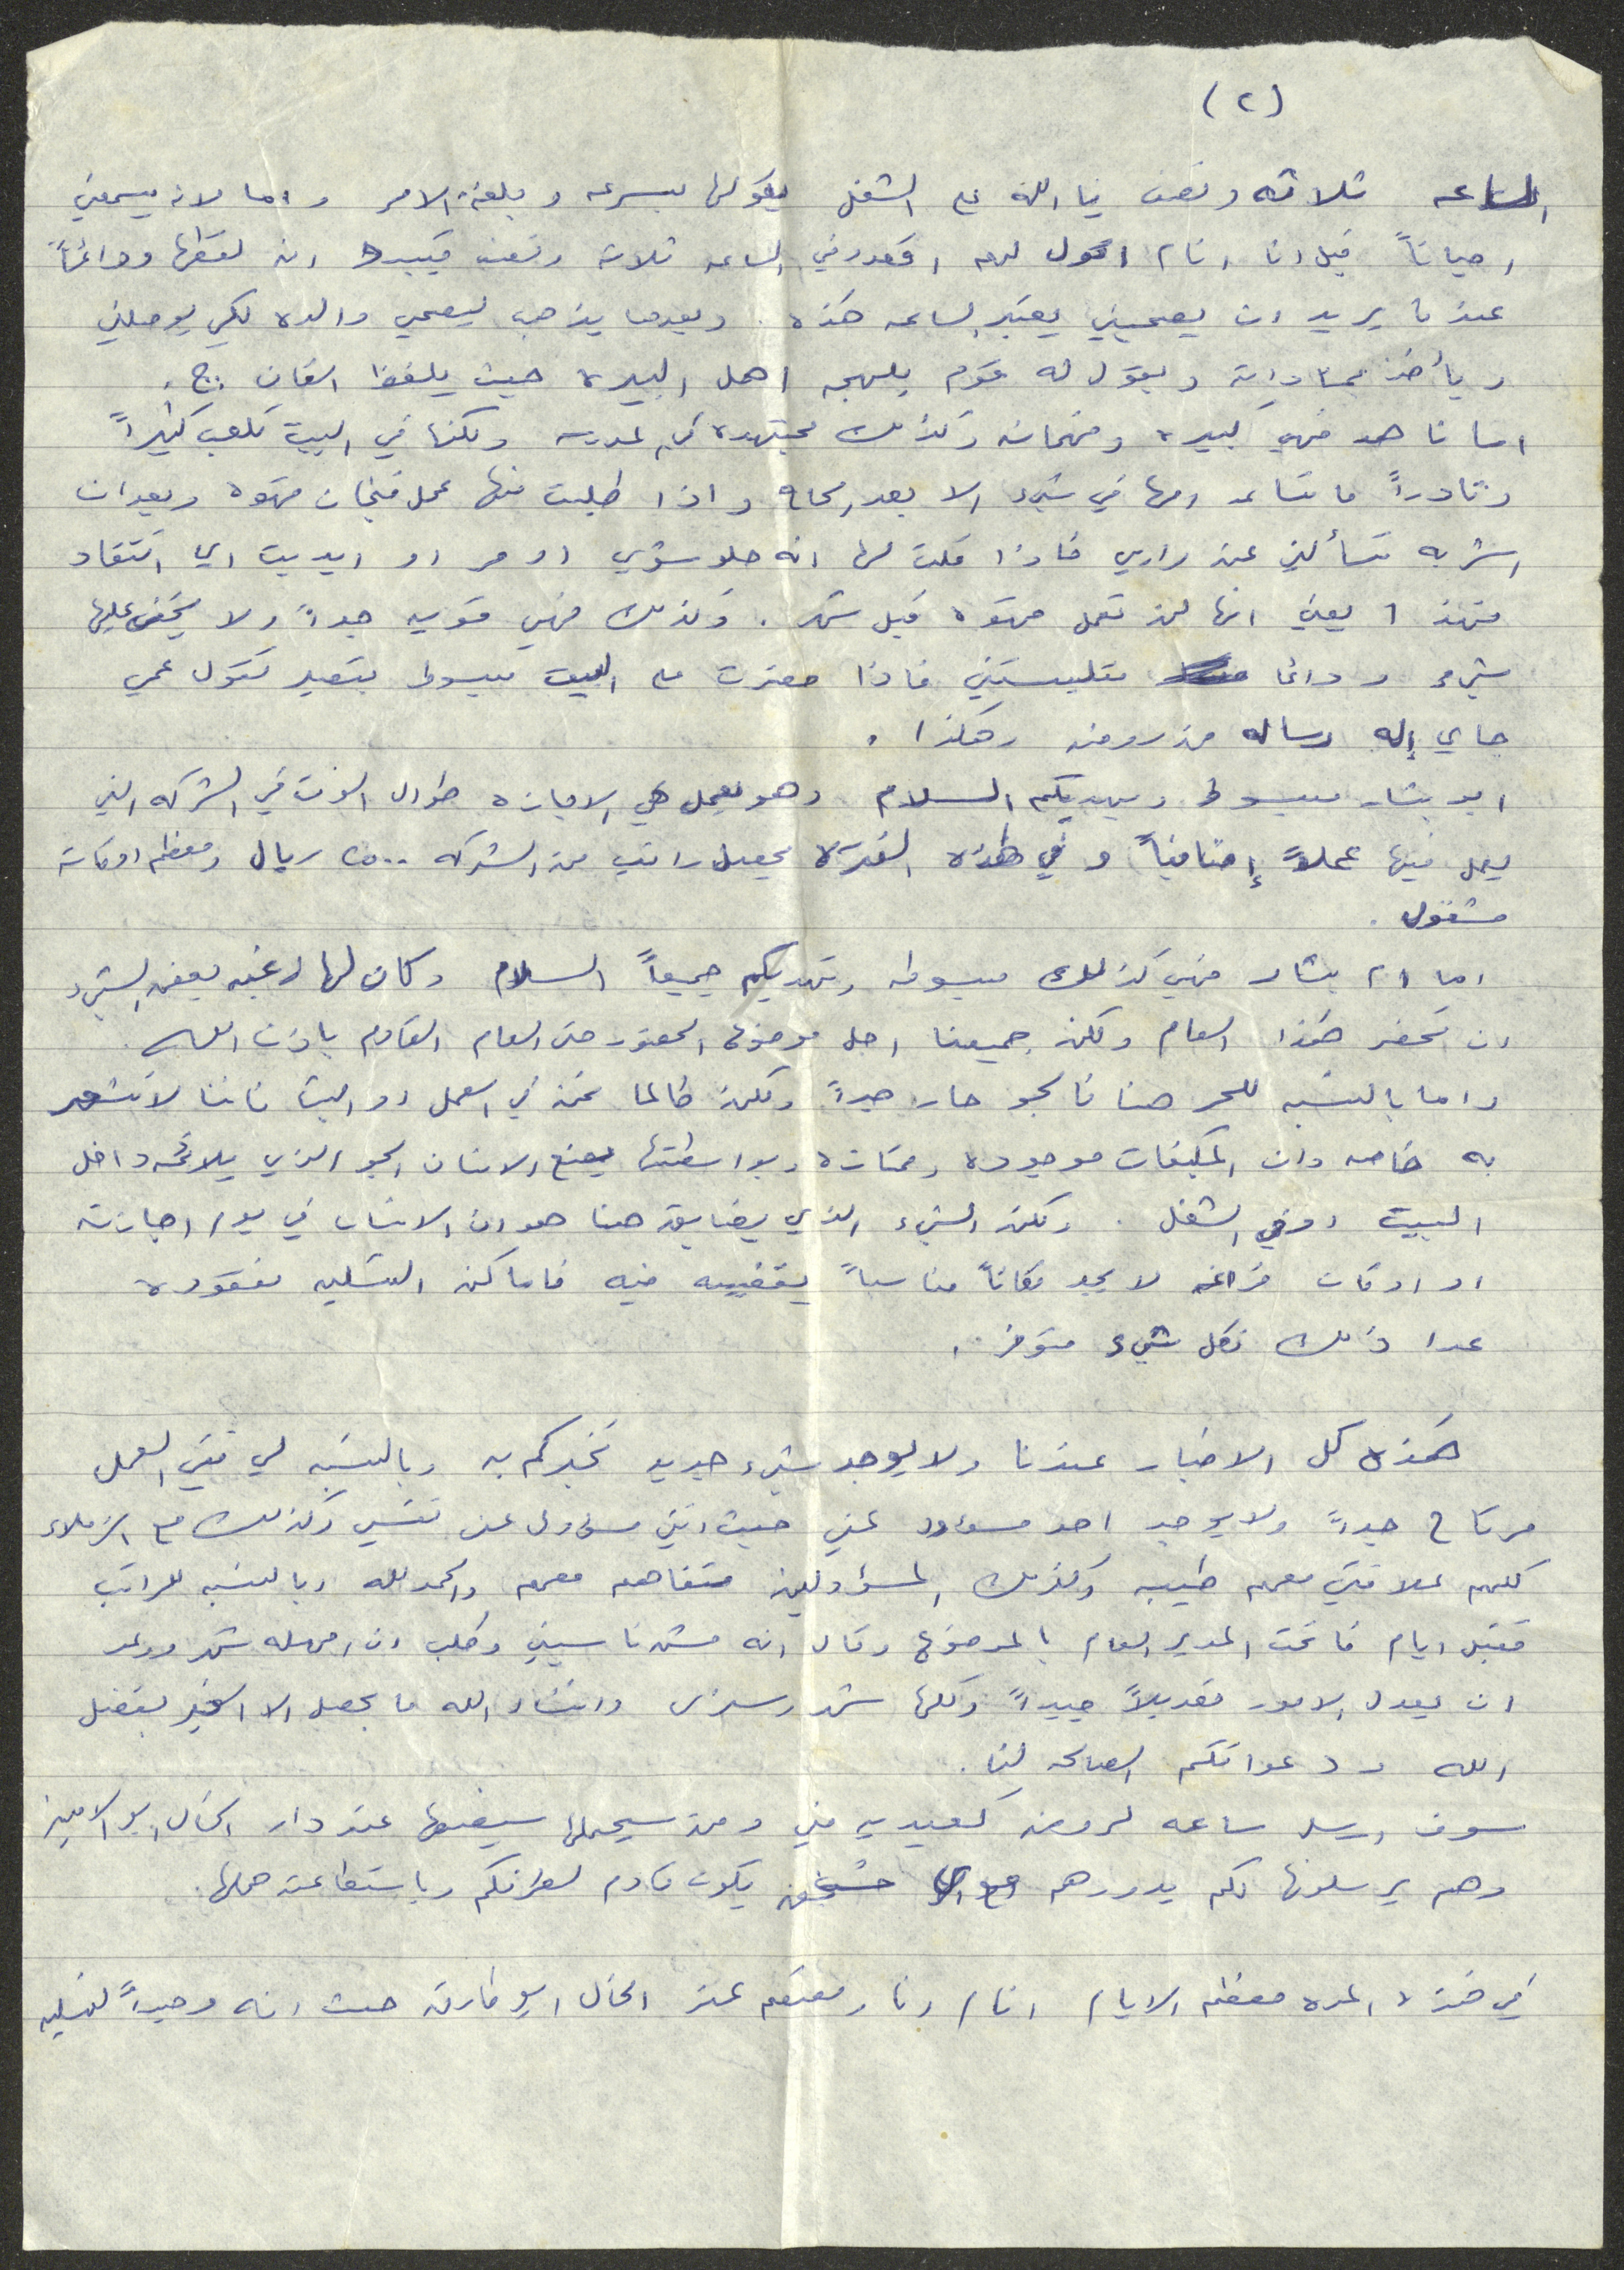 (٢)
الساعه ثلاثه ونصف يا الله على الشغل يقولها بسرعه وبلغة الامر واما لانه يسمعني
احياناً قبل ان انام اقول لهم اقعدوني الساعه ثلاثه ونصف فيبدو انه لقطها ودائماً
عندما يريد ان يصحيني يعتبر الساعه هكذه. وبعدها يذهب ليصحي والده لكي يوصلني
ويأخذ بمناداته ويقول له قوم بلهجه اهل البيره حيث يلفظ القاف ج.
اما ناهد فهي كبيره وفهمانه وكذلك مجتهده في المدرسه ولكنها في البيت تلعب كثيراً
ونادراً ما تساعد امها في شيء الا بعد الحاح واذا طلبت منها عمل فنجان قهوه وبعد ان
اشربه تسألني عن رأيي فاذا قلت لها انه حلو شوي او مر او ابديت اي انتقاد
فهذا يعني انها لن تعمل قهوه قبل شهر. وكذلك فهي قويه جداً ولا يخفى عليها
شيء ودائما فاذا حضرت على البيت مبسوط بتصير تقول عمي
جاي إله رساله من روضه وهكذا.
ابو بشار مبسوط ويهديكم السلام وهو يعمل في الاجازه طوال الوقت في الشركه التي
يعمل فيها عملاً إضافياً وفي هذه الفتره يحصل راتب من الشركه ٢٥٠٠ ريال ومعظم اوقاته
مشغول.
اما ام بشار فهي كذلك مبسوطه وتهديكم جميعاً السلام وكان لها رغبه بعض الشيء
ان تحضر هذا العام ولكن جميعنا اجل موضوع الحضور حتى العام القادم باذن الله.
واما بالنسبه للحر هنا فالجو حار جداً ولكن طالما نحن في العمل او البيت فاننا لا نشعر
به خاصه وان المكيفات موجوده وممتازه وبواسطتها يصنع الانسان الجو الذي يلائمه داخل
البيت او في الشغل. ولكن الشيء الذي يضايق هنا هو ان الانسان في يوم اجازته
او اوقات فراغه لا يجد مكاناً مناسباً يقضيه فيه فاماكن التسليه مفقوده
عدا ذلك فكل شيء متوفر.
هذه كل الاخبار عندنا ولا يوجد شيء جديد نخبركم به وبالنسبه لي ففي العمل
مرتاح جداً ولا يوجد احد مسؤول عني حيث انني مسؤول عن نفسي وكذلك مع الزملاء
كلهم علاقتي معهم طيبه وكذلك المسؤولين متفاهم معهم والحمد لله وبالنسبه للراتب
فقبل ايام فاتحت المدير العام بالموضوع وقال انه مش ناسيني وطلب ان امهله شهر ووعد
ان يعدل الامور تعديلاً جيداً وكلها شهر وسنرى وانشاء الله ما يحصل الا الخير بفضل
الله ودعواتكم الصالحه لنا.
سوف ارسل ساعه لروضه كعيديه مني ومن سيحملها سيضعها عند دار الخال ابو الامين
وهم يرسلونها لكم بدورهم مع شخص يكون قادم لطرفكم وباستطاعته حملها.
في هذه المره معظم الايام انام انا ومعتصم عند الخال ابو طارق حيث انه وحيداً لنسليه